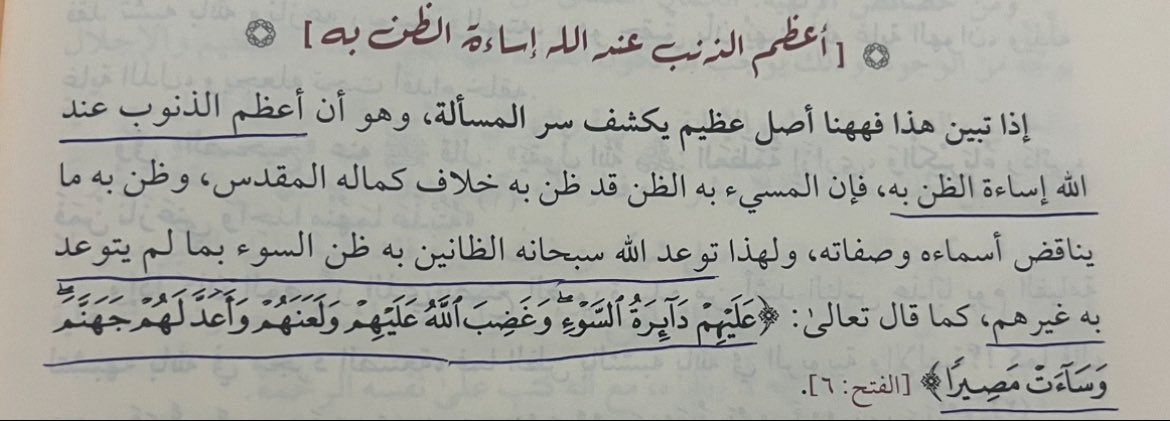 [أعظم الذنب عند الله إساءة الظن به]
إذا تبين هذا فههنا أصل عظيم يكشف سر المسألة، وهو أن أعظم الذنوب عند
الله إساءة الظن به، فإن المسيء به الظن قد ظن به خلاف كماله المقدس، وظن به ما
يناقض أسماءه وصفاته، ولهذا توعد الله سبحانه الظانين به ظن السوء بما لم يتوعد
به غيرهم، كما قال تعالىٰ: ﴿عَلَيْهِمْ دَآئِرَةُ ٱلسَّوْءِ ۖ وَغَضِبَ ٱللَّهُ عَلَيْهِمْ وَلَعَنَهُمْ وَأَعَدَّ لَهُمْ جَهَنَّمَ ۖ
وَسَآءَتْ مَصِيرًا﴾ [الفتح: ٦].